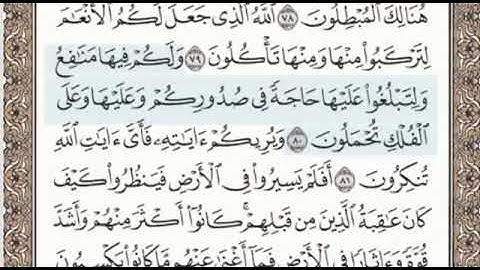 هُنَالِكَ ٱلْمُبْطِلُونَ ٧٨ ٱللَّهُ ٱلَّذِى جَعَلَ لَكُمُ ٱلْأَنْعَٰمَ
لِتَرْكَبُوا۟ مِنْهَا وَمِنْهَا تَأْكُلُونَ ٧٩ وَلَكُمْ فِيهَا مَنَٰفِعُ
وَلِتَبْلُغُوا۟ عَلَيْهَا حَاجَةً فِى صُدُورِكُمْ وَعَلَيْهَا وَعَلَى
ٱلْفُلْكِ تُحْمَلُونَ ٨٠ وَيُرِيكُمْ ءَايَٰتِهِۦ فَأَىَّ ءَايَٰتِ ٱللَّهِ
تُنكِرُونَ ٨١ أَفَلَمْ يَسِيرُوا۟ فِى ٱلْأَرْضِ فَيَنظُرُوا۟ كَيْفَ
كَانَ عَٰقِبَةُ ٱلَّذِينَ مِن قَبْلِهِمْ ۚ كَانُوٓا۟ أَكْثَرَ مِنْهُمْ وَأَشَدَّ
قُوَّةً وَءَاثَارًا فِى ٱلْأَرْضِ فَمَآ أَغْنَىٰ عَنْهُم مَّا كَانُوا۟ يَكْسِبُونَ